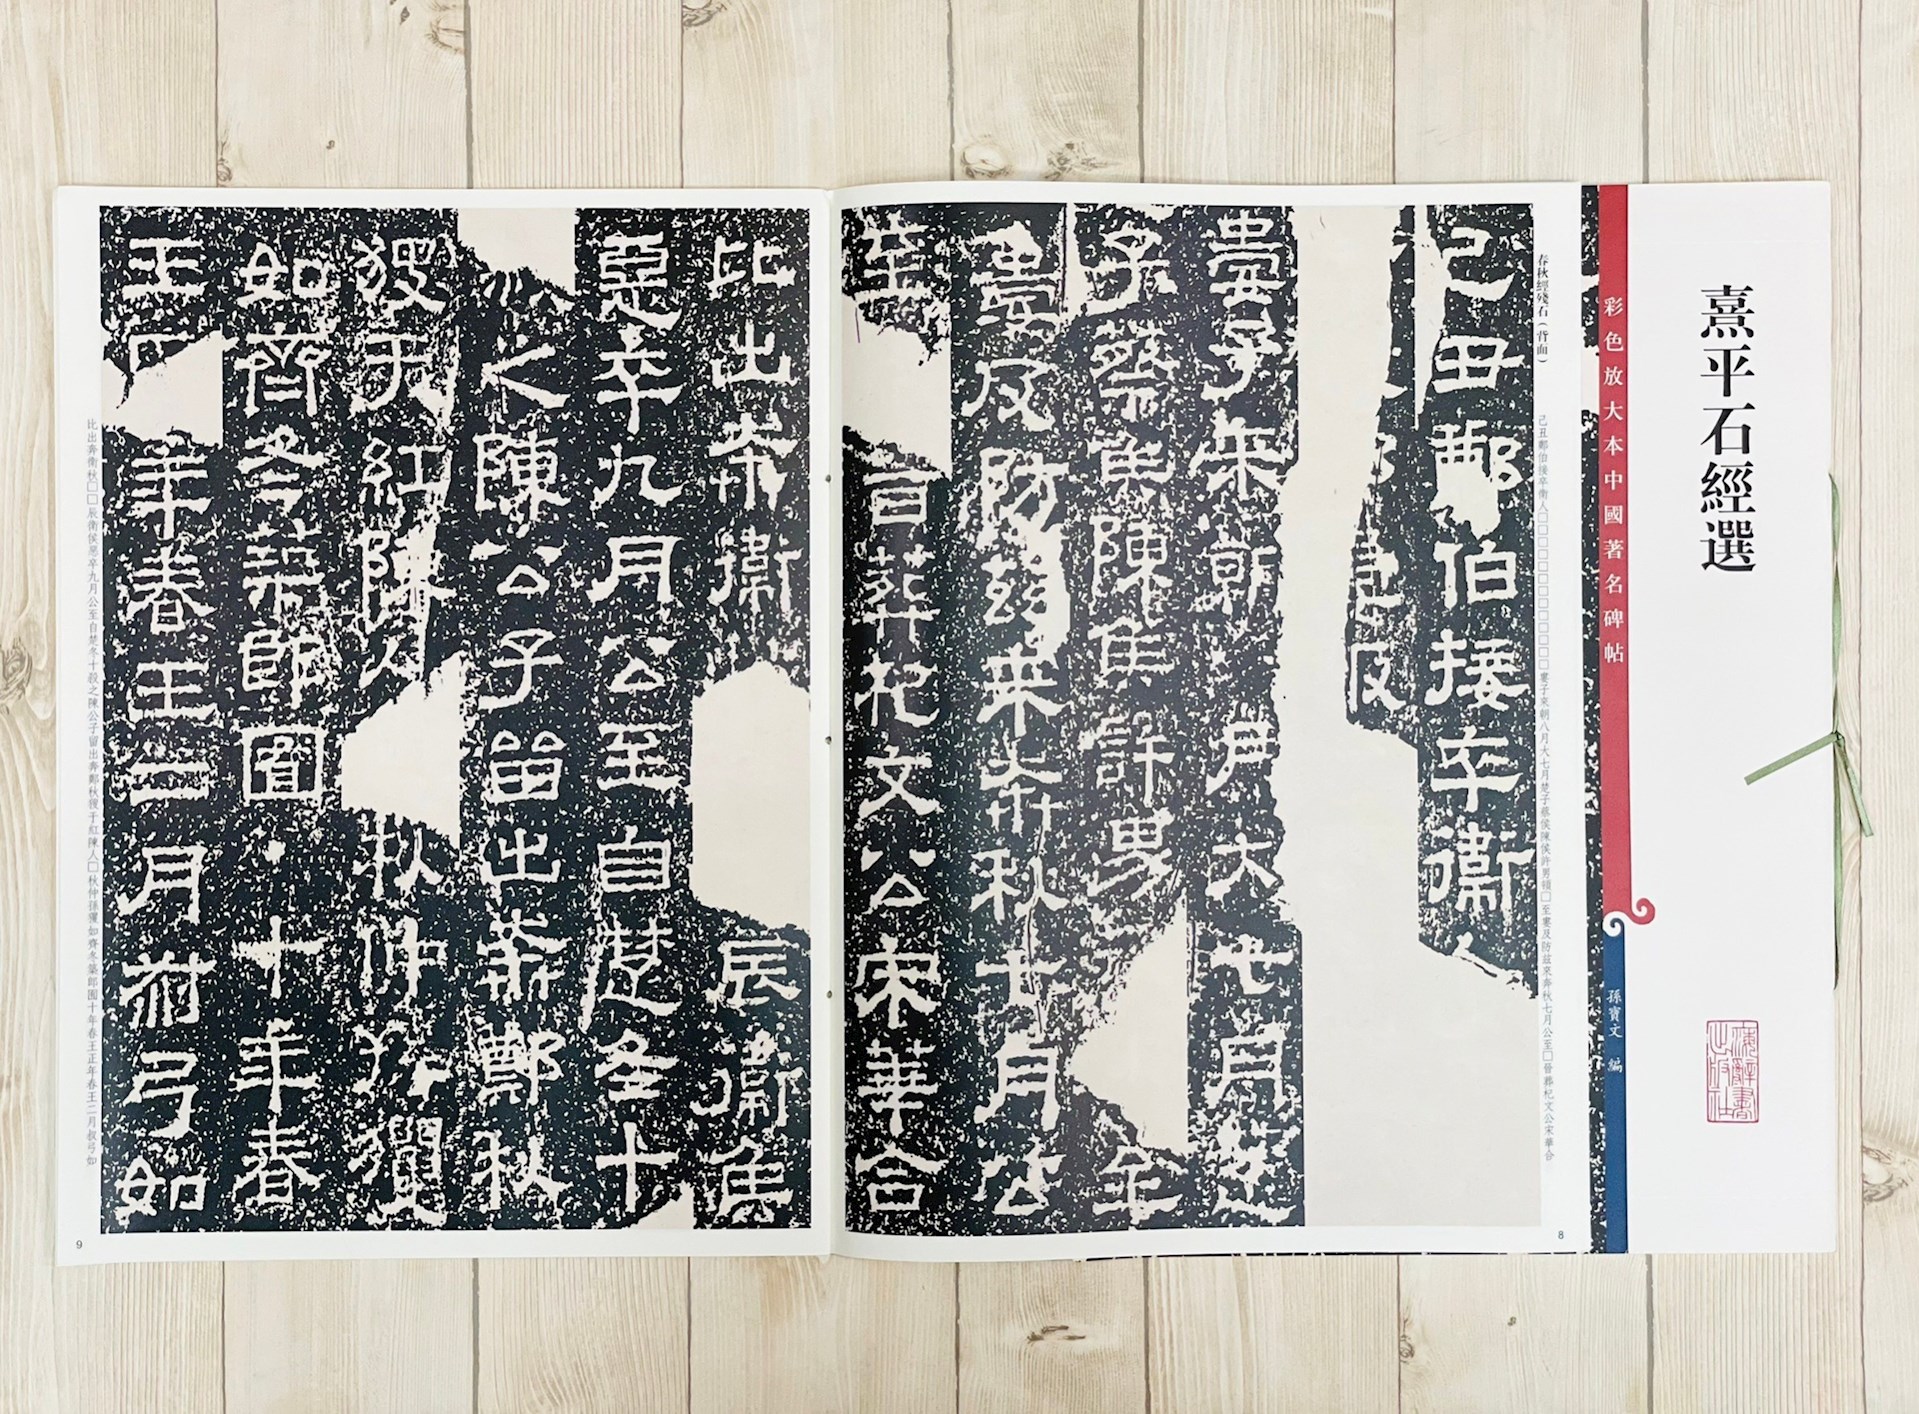 熹平石經選
彩色放大本中國著名碑帖
孫寶文 編
春秋經殘石（背面）
己丑鄭伯接卒衛人□□□□□□□□□□□□□□□婁子來朝八月大七月楚子蔡侯陳侯許男頓□至婁及防茲來奔秋七月公至□晉葬杞文公宋華合
己丑鄭伯接卒衛人
婁子來朝 月大 七月楚
子蔡侯陳侯許男
婁及防茲來奔秋七月公
至 晉葬杞文公宋華合
8
比出奔衛 辰衛侯
惡卒九月公至自楚冬十
之陳公子留出奔鄭秋
蒐于紅陳人 秋仲孫貜
如齊冬築郎囿·十年春
王 年春王二月叔弓如
比出奔衛秋□□辰衛侯惡卒九月公至自楚冬十殺之陳公子留出奔鄭秋蒐于紅陳人□秋仲孫貜如齊冬築郎囿十年春王正年春王二月叔弓如
9